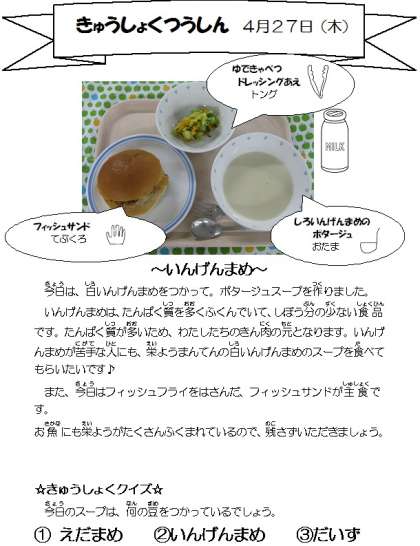 きゅうしょくつうしん ４月２７日（木）
ゆできゃべつ
ドレッシングあえ
トング
MILK
フィッシュサンド
てぶくろ
しろいんげんまめの
ポタージュ
おたま
～いんげんまめ～
今日は、白いんげんまめをつかって。ポタージュスープを作りました。
いんげんまめは、たんぱく質を多くふくんでいて、しぼう分の少ない食品
です。たんぱく質が多いため、わたしたちのきん肉の元となります。いんげ
んまめが苦手な人にも、栄ようまんてんの白いんげんまめのスープを食べて
もらいたいです♪
また、今日はフィッシュフライをはさんだ、フィッシュサンドが主食で
す。
お魚にも栄ようがたくさんふくまれているので、残さずいただきましょう。
☆きゅうしょくクイズ☆
今日のスープは、何の豆をつかっているでしょう。
① えだまめ ②いんげんまめ ③だいず